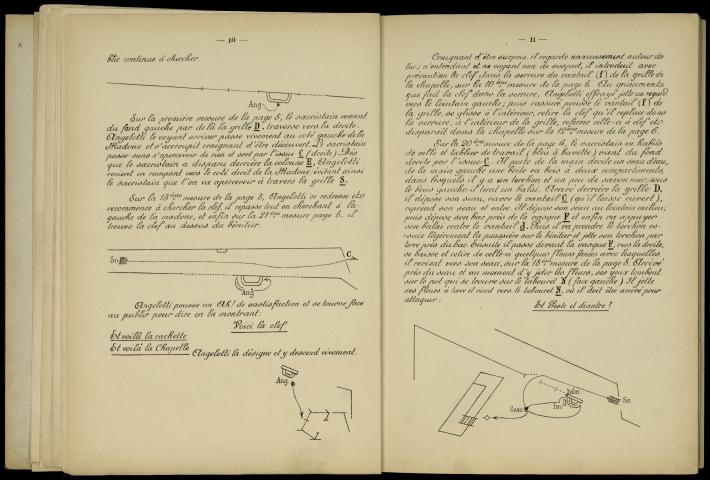 — 10 —
blic continue à chercher.
Ang
Sur la première mesure de la page 5, le sacristain venant
du fond gauche par delà la grille D, traverse vers la droite.
Angelotti le voyant arriver passe vivement au coté gauche de la
Madone et s'accroupit craignant d'être découvert. Le sacristain
passe sans s'apercevoir de rien et sort par l'issue C (droite). Dès
que le sacristain a disparu derrière la colonne E, Angelotti
revient en rampant vers le coté droit de la Madone, évitant ainsi
le sacristain que l'on va apercevoir à travers la grille S.
Sur la 13ème mesure de la page 5, Angelotti se redresse et
recommence à chercher la clef, il repasse tout en cherchant à la
gauche de la madone, et enfin sur la 21ème mesure page 5, il
trouve la clef au dessus du bénitier.
Sn
C
Ang
Angelotti pousse un AH! de satisfaction et se tourne face
au public pour dire en la montrant:
Voici la clef
Et voilà la cachette
Et voilà la Chapelle
Angelotti la désigne et y descend vivement.
Ang
— 11 —
Craignant d'être surpris, il regarde anxieusement autour de
lui; n'entendant et ne voyant rien de suspect, il introduit avec
précaution la clef dans la serrure du vantail (f) de la grille de
la chapelle, sur la 10ème mesure de la page 6. Au grincement
que fait la clef dans la serrure, Angelotti effrayé jette un regard
vers le lointain gauche; puis rassuré pousse le vantail (f) de
la grille, se glisse à l'intérieur, retire la clef qu'il replace dans
la serrure, à l'intérieur de la grille, referme celle-ci à clef et
disparait dans la chapelle sur la mesure de la page 6.
Sur la 20ème mesure de la page 6, le sacristain en habits
de ville et tablier de travail (bleu à bavette) venant du fond
droite par l'issue C. Il porte de la main droite un seau d'eau,
de la main gauche une boîte en bois à deux compartiments,
dans lesquels il y a un torchon et un peu de savon mou; sous
le bras gauche il tient un balai. Arrivé derrière la grille D,
il dépose son seau, ouvre le vantail (qu'il laisse ouvert),
reprend son seau et entre. Il dépose son seau au lointain milieu;
puis dépose son bac près de la vasque F et enfin va appuyer
son balai contre le vantail d. Puis il va prendre le torchon es-
-suie légèrement la poussière sur le bénitier et jette son torchon par
terre près du bac. Ensuite il passe devant la vasque F, vers la droite,
se baisse et retire de celle-ci quelques fleurs fanées avec lesquelles
il revient vers son seau, sur la 18ème mesure de la page 8. Arrivé
près du seau et au moment d'y jeter les fleurs, ses yeux tombent
sur le pot qui se trouve sur le tabouret N (face gauche) Il jette
ses fleurs à terre et vient vers le tabouret N, où il doit être arrivé pour
attaquer:
Et Peste et diantre?
balai
bac
Seau
Sn